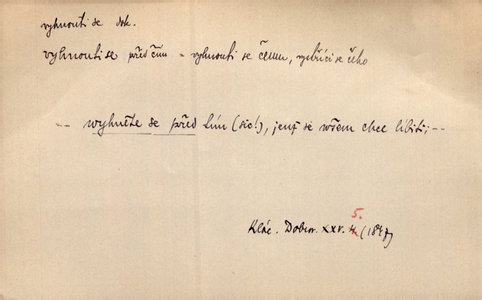 vyhnouti se dok.
vyhnouti se před čím = vyhnouti se čemu, vystříci se čeho
-- wyhněte se před lím (sic!), jenž se wšem chce líbiti; --
5.
Klác. Dobrov. XXV. 4. (1847)